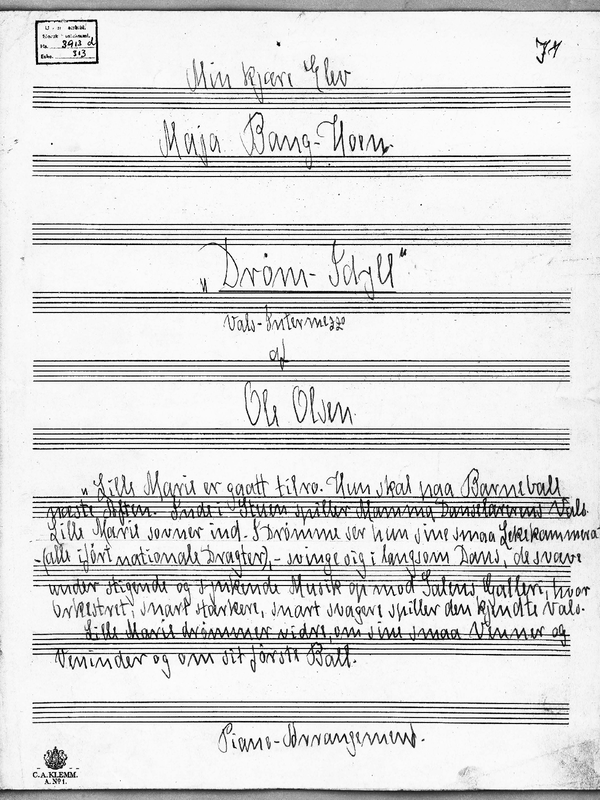 No. 3913 d
Eske. 313
71
Min kjære Elev
Maja Bang-Hoen.
"Dröm-Idyll"
Vals-Intermezzo
af
Ole Olsen
"Lille Marie er gaatt tilro. Hun skal paa Barneball
næste Aften. Inde i Stuen spiller Mamma Danselærerens Vals.
Lille Marie sovner ind. I Drömme ser hun sine smaa Lekekammerat
(alle iført nationale Dragter),- svinge sig i langsom Dans, de svæve
under stigende og synkende Musik op mod Salens Galleri, hvor
Orkestret, snart stærkere, snart svagere spiller den kjendte Vals.
Lille Marie drömmer vidre, om sine smaa Venner og
Veninder og om sit förste Ball.
Piano-Arrangement.
C.A.KLEMM.
A. No 1.